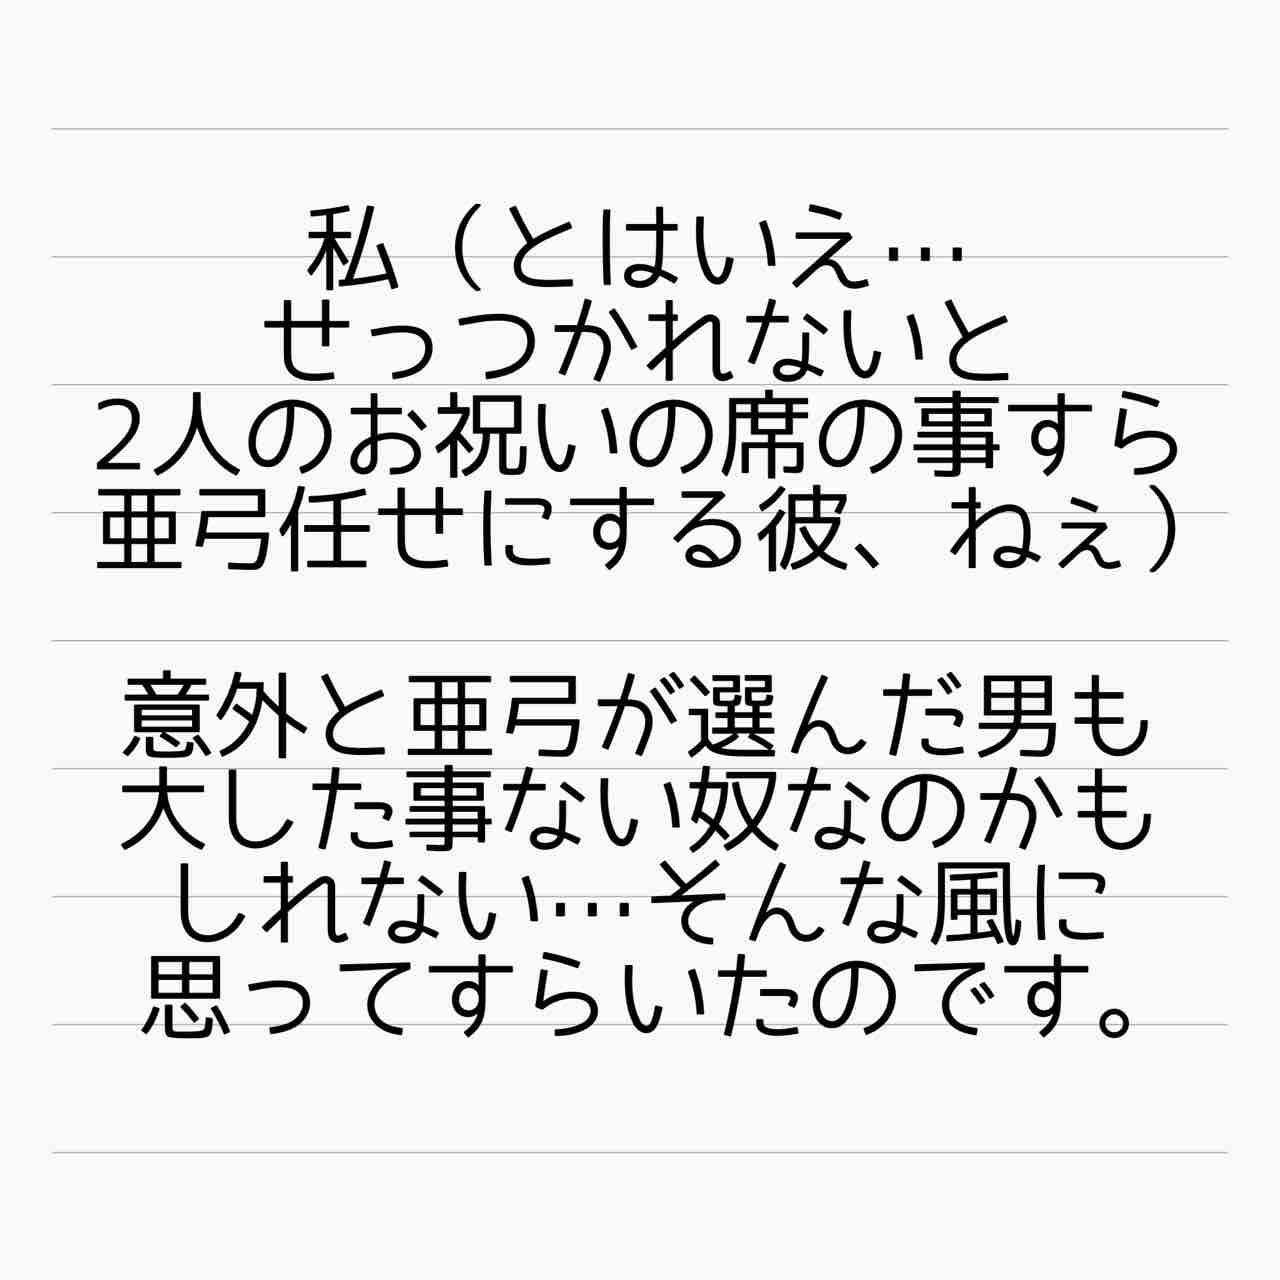 私（とはいえ…
せっつかれないと
2人のお祝いの席の事すら
亜弓任せにする彼、ねぇ）
意外と亜弓が選んだ男も
大した事ない奴なのかも
しれない…そんな風に
思ってすらいたのです。